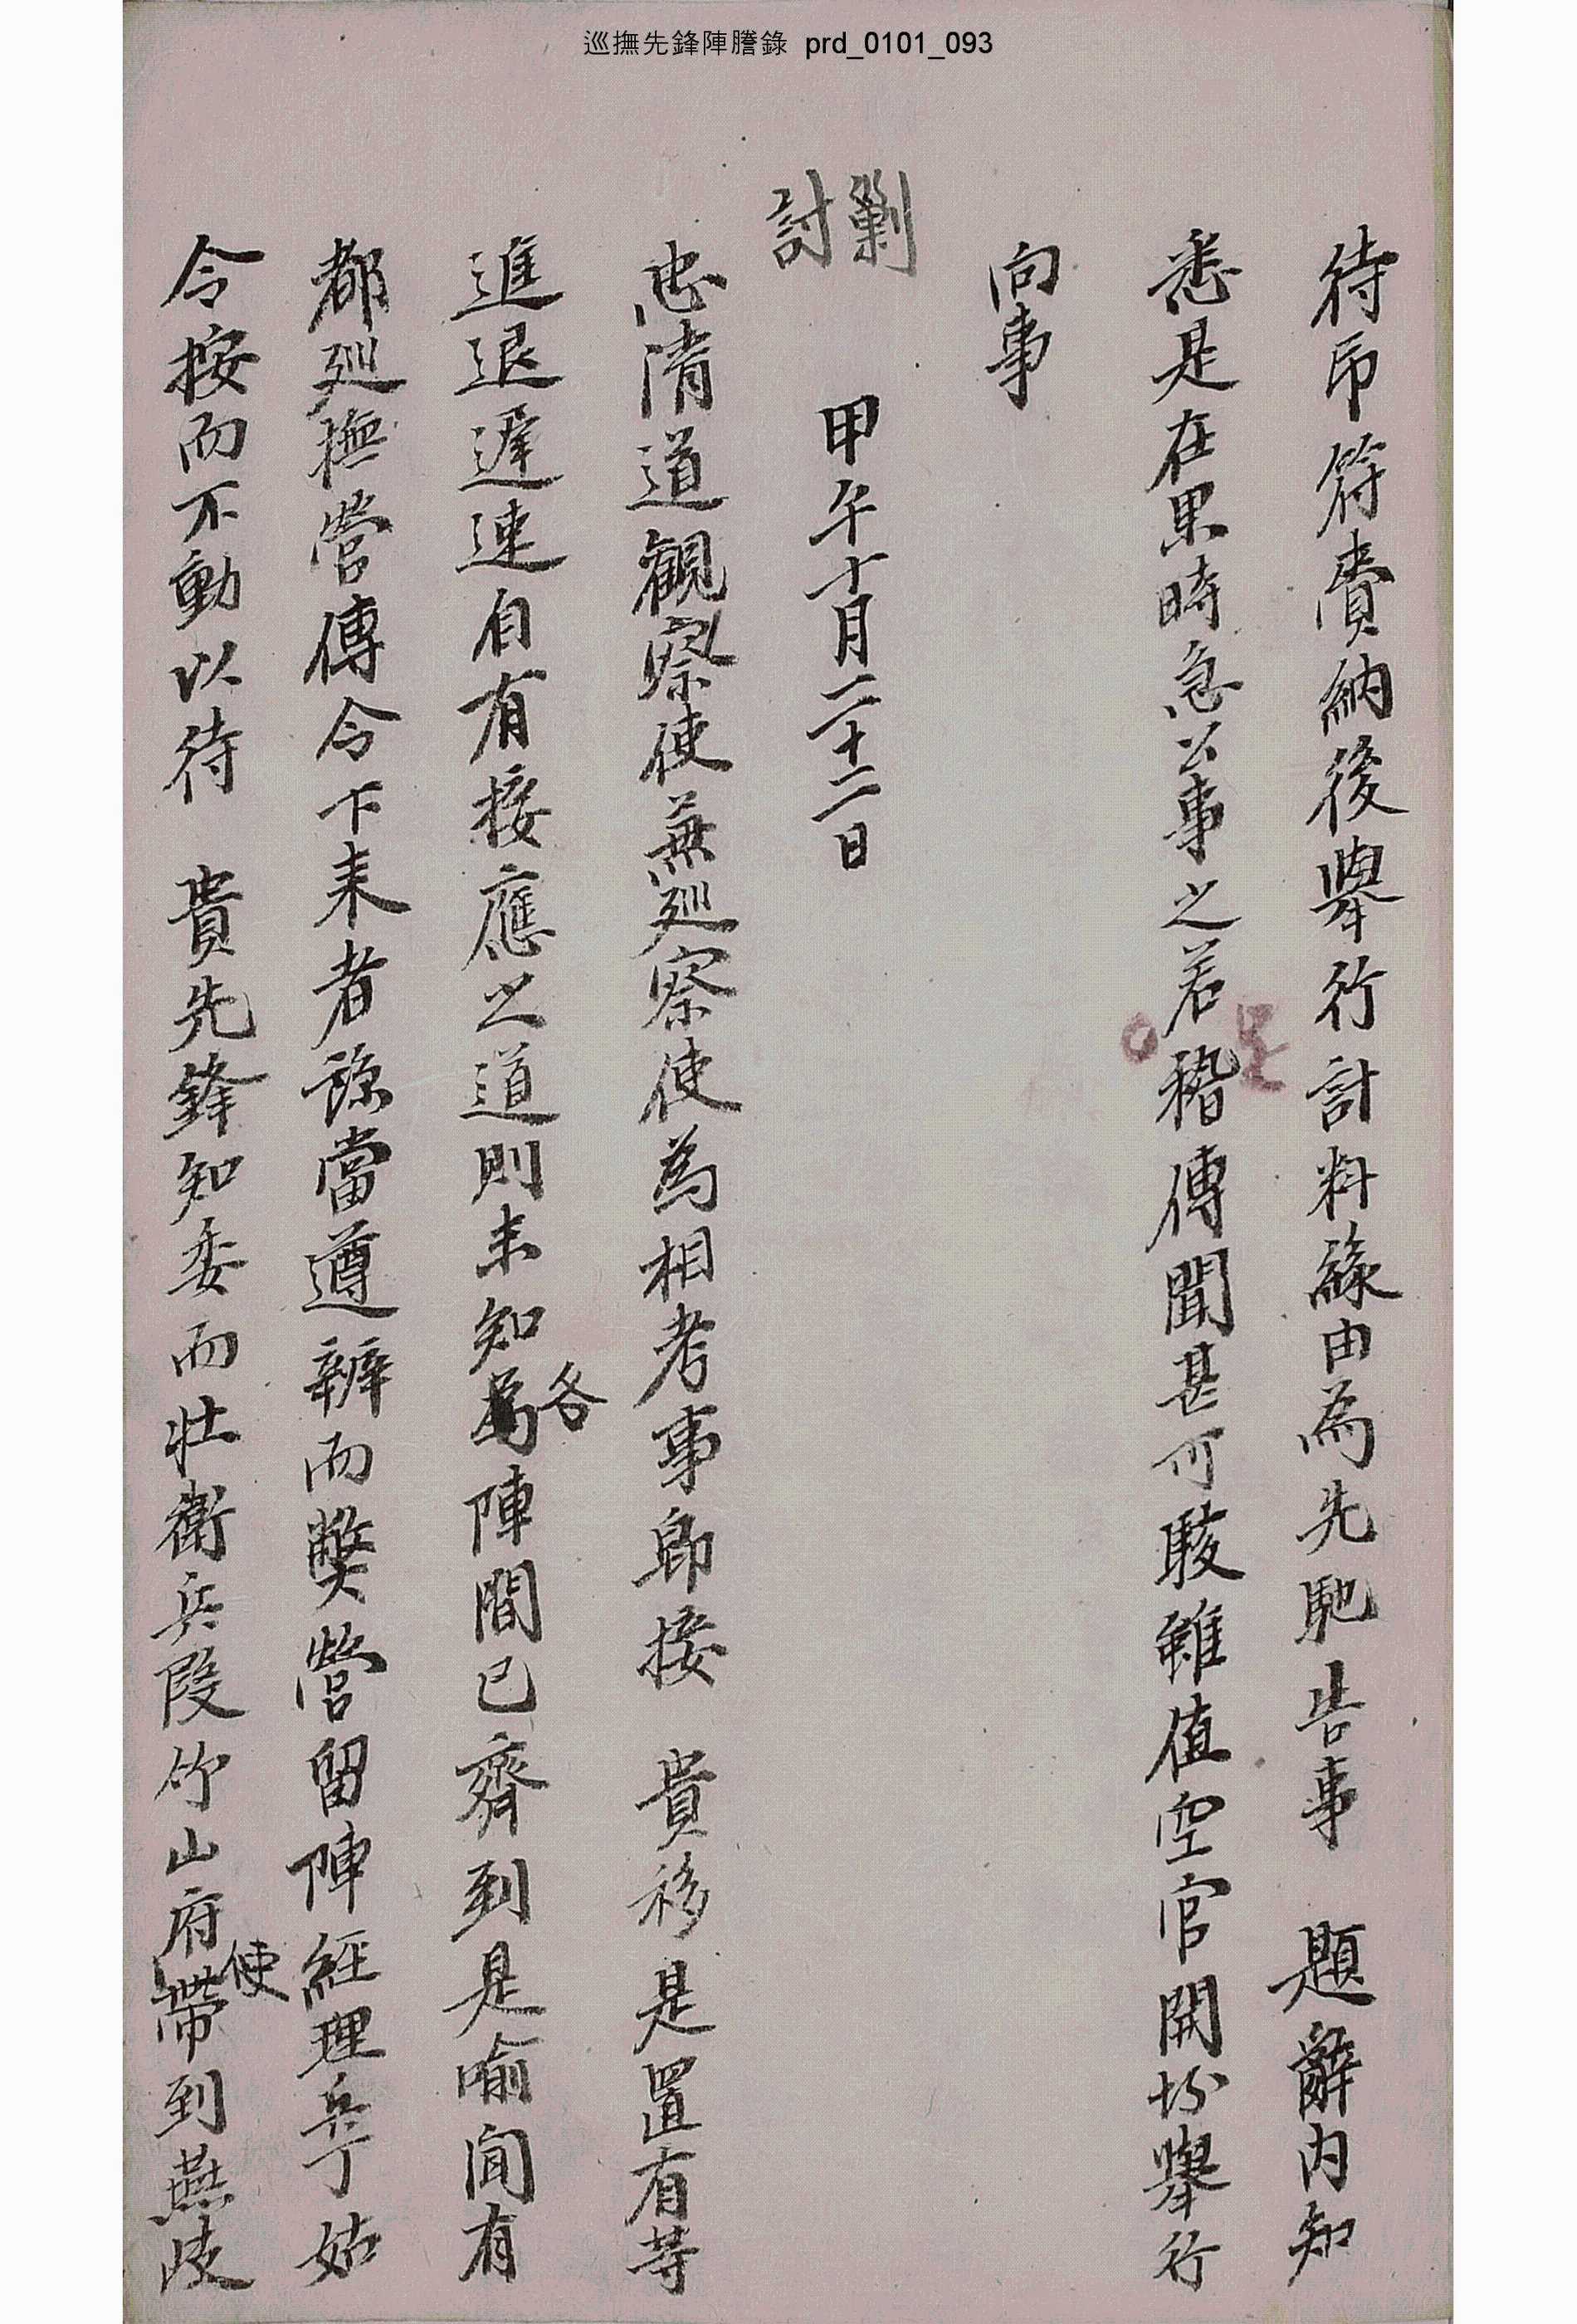 巡撫先鋒陣謄錄 prd_0101_093
待印符賷納後擧行計料緣由爲先馳告事 題辭內知
悉是在果時急公事之若稽傳聞甚可駭雖值空官開坼擧行
向事
剿討
甲午十月二十二日
忠清道觀察使兼廵察使爲相考事卽接 貴移是置有等
進退遲速自有接應之道則未知各陣間已齊到是喻聞有
都廵撫營傳令下來者諒當遵辦而獘營留陣經理兵丁姑
令按而不動以待 貴先鋒知委而壯衛兵段竹山府使帶到燕歧